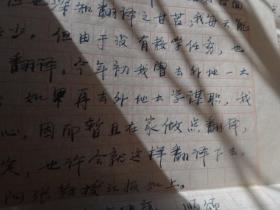 深知翻译之甘苦，我每天能
少。但由于没有教学任务，也
翻译。今年初我曾去外地一大
如果再去外地大学谋职，我
心，因而暂且在家做点翻译，
定，也许会就这样翻译下去。
张教授
顺颂